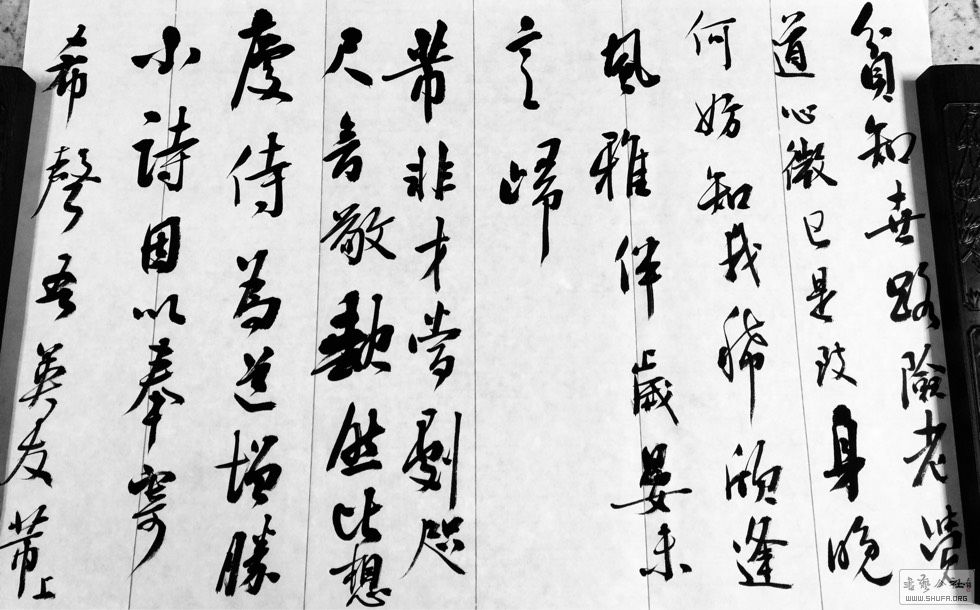 貧知世路險老覺
道心微已是致身晚
何妨知我稀欣逢
風雅伴歲晏未
言歸
芾非才當劇咫
尺音敬然比想
慶侍為道增勝
小詩因以奉寄
希聲吾英友芾上
WWW.SHUFA.ORG